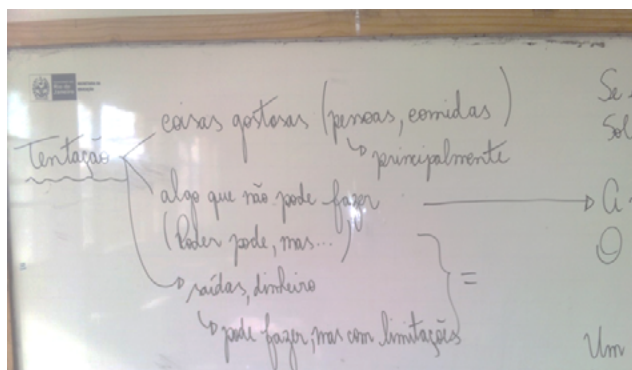 coisas gostosas (pessoas, comidas)
↳ principalmente
Tentação
algo que não pode fazer
(Poder pode, mas...)
saídas, dinheiro
=
↳ pode fazer, mas com limitações
Se
Sol
A
O
Um